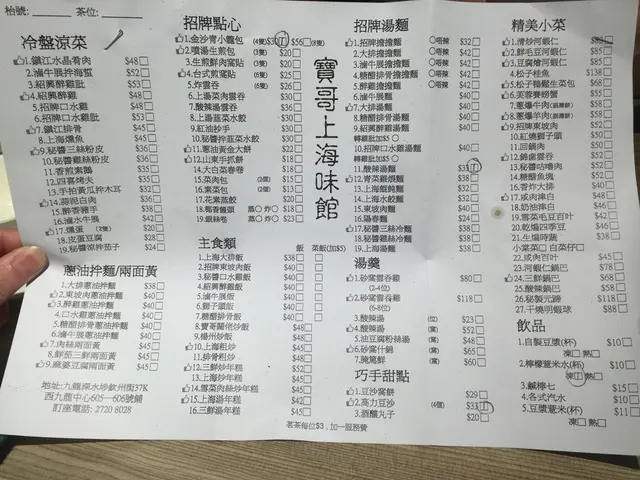 枱號: 茶位:
冷盤涼菜
1.鎮江水晶肴肉 $48
2.滷牛展拼海蜇 $52
3.醉雞 $38
4.紹興醉雞 $38
5.招牌口水雞 $48
6.招牌口水雞 $53
7.鎮江排骨 $45
8.上海燻魚 $45
9.秘醬三絲粉皮 $36
10.秘醬雞絲粉皮 $36
11.香煎素鵝 $35
12.四喜烤夫 $35
13.手拍黃瓜拌木耳 $32
14.蒜泥白肉 $36
15.醉香豬手 $38
16.滷水牛展 $42
17.燻蛋 (2隻) $20
18.皮蛋豆腐 $28
19.秘醬涼拌茄子 $24
蔥油拌麵/兩面黃
1.大排蔥油拌麵 $38
2.東坡肉蔥油拌麵 $40
3.醉雞蔥油拌麵 $40
4.口水雞蔥油拌麵 $40
5.糖醋排骨蔥油拌麵 $40
6.滷牛展蔥油拌麵 $40
7.肉絲兩面黃 $45
8.鮮茄三鮮兩面黃 $45
9.麻婆豆腐兩面黃 $45
地址:九龍深水埗欽州街37K
西九龍中心605-606號舖
訂座電話: 2720 8028
招牌點心
1.金沙青小籠包 (4隻)$30 $56(8隻)
2.噴湯生煎包 (3隻) $20
3.生煎鮮肉窩貼 (5隻) $30
4.台式煎窩貼 (6隻) $25
5.炸雲吞 (6隻) $26
6.上湯菜肉雲吞 $30
7.酸辣湯雲吞 $36
8.上湯韮菜水餃 $30
9.紅油抄手 $30
10.秘醬拌韮菜水餃 $30
11.蔥油黃金大餅 $22
12.山東手抓餅 $18
14.大白菜春卷 $18
15.菜肉包 (2個) $15
16.素菜包 (2個) $13
17.花素蒸餃 $20
18.椰香饅頭 蒸○ 炸○ $20
19.銀絲卷 蒸○ 炸○ $23
主食類 飯 菜飯(加$5)
1.上海大排飯 $38
2.招牌東坡肉飯 $40
3.秘醬口水雞飯 $40
4.紹興醉雞飯 $40
5.滷牛展飯 $40
6.獅子頭飯 $40
7.糖醋排骨飯 $40
8.寶哥闊佬炒飯 $48
9.楊州炒飯 $45
10.上海粗炒 $45
11.排骨粗炒 $45
12.三鮮炒年糕 $52
13.上海炒年糕 $45
14.雪菜肉絲炒年糕 $45
15.上湯年糕 $42
16.三鮮湯年糕 $45
寶哥上海味館
招牌湯麵
1.招牌擔擔麵 ○唔辣 $32
2.大排擔擔麵 ○唔辣 $40
3.滷牛展擔擔麵 ○唔辣
4.糖醋排骨擔擔麵 ○唔辣
5.醉雞擔擔麵 ○唔辣 $40
6.滷牛展麵 $40
7.大排湯麵 $38
8.糖醋排骨湯麵 $40
9.紹興醉雞湯麵 $40
轉雞肶加$5 ○
10.招牌口水雞湯麵 $40
轉雞肶加$5 ○
11.酸辣湯麵 $33
12.青菜雞煨麵 $38
13.上海餛飩麵 $38
14.上海水餃麵 $38
15.東坡肉麵 $40
16.陽春麵 $24
17.秘醬三絲冷麵 $38
18.秘醬雞絲冷麵 $38
19.上海湯麵 $38
湯羹
1.砂窩雲吞雞 $80
(2-4位)
2.砂窩雲吞雞 $118
(6-8位)
3.酸辣湯 (位) $23
4.酸辣湯 (窩) $52
5.油豆腐粉絲湯 (窩) $58
6.砂窩什錦 (窩) $65
7.腌篤鮮 (窩) $60
巧手甜點
1.豆沙窩餅 $29
2.高力豆沙 (4個) $33
3.酒釀丸子 $20
茗茶每位$3,加一服務費
精美小菜
1.清炒河蝦仁
2.鮮毛豆河蝦仁 $85
3.豆腐燴河蝦仁 $85
4.松子桂魚 $138
5.松子雞鬆生菜包 $68
6.芙蓉賽螃蟹 $55
7.蔥爆牛肉 $55
8.蔥爆羊肉 $58
9.招牌東坡肉 $52
10.紅燒獅子頭 $50
11.回鍋肉 $50
12.錦鹵雲吞 $50
13.秘醬咕嚕肉 $52
14.糖醋魚塊 $52
16.香炸大排 $40
17.咸肉津白 $48
18.奶油津白 $46
19.雪菜毛豆百叶 $42
20.乾煸四季豆 $46
21.生煸時蔬 $38
小棠菜○ 白菜仔○
22.咸肉百叶 $45
23.河蝦仁鍋巴 $78
24.三鮮鍋巴 $68
25.酸辣鍋巴 $58
26.秘製元蹄 $118
27.干燒明蝦球 $88
飲品
1.自製豆漿(杯) $10
凍 熱
2.檸檬薏米水(杯) $10
凍 熱
3.鹹檸七 $15
4.各式汽水 $10
5.豆漿薏米(杯) $11
凍 熱